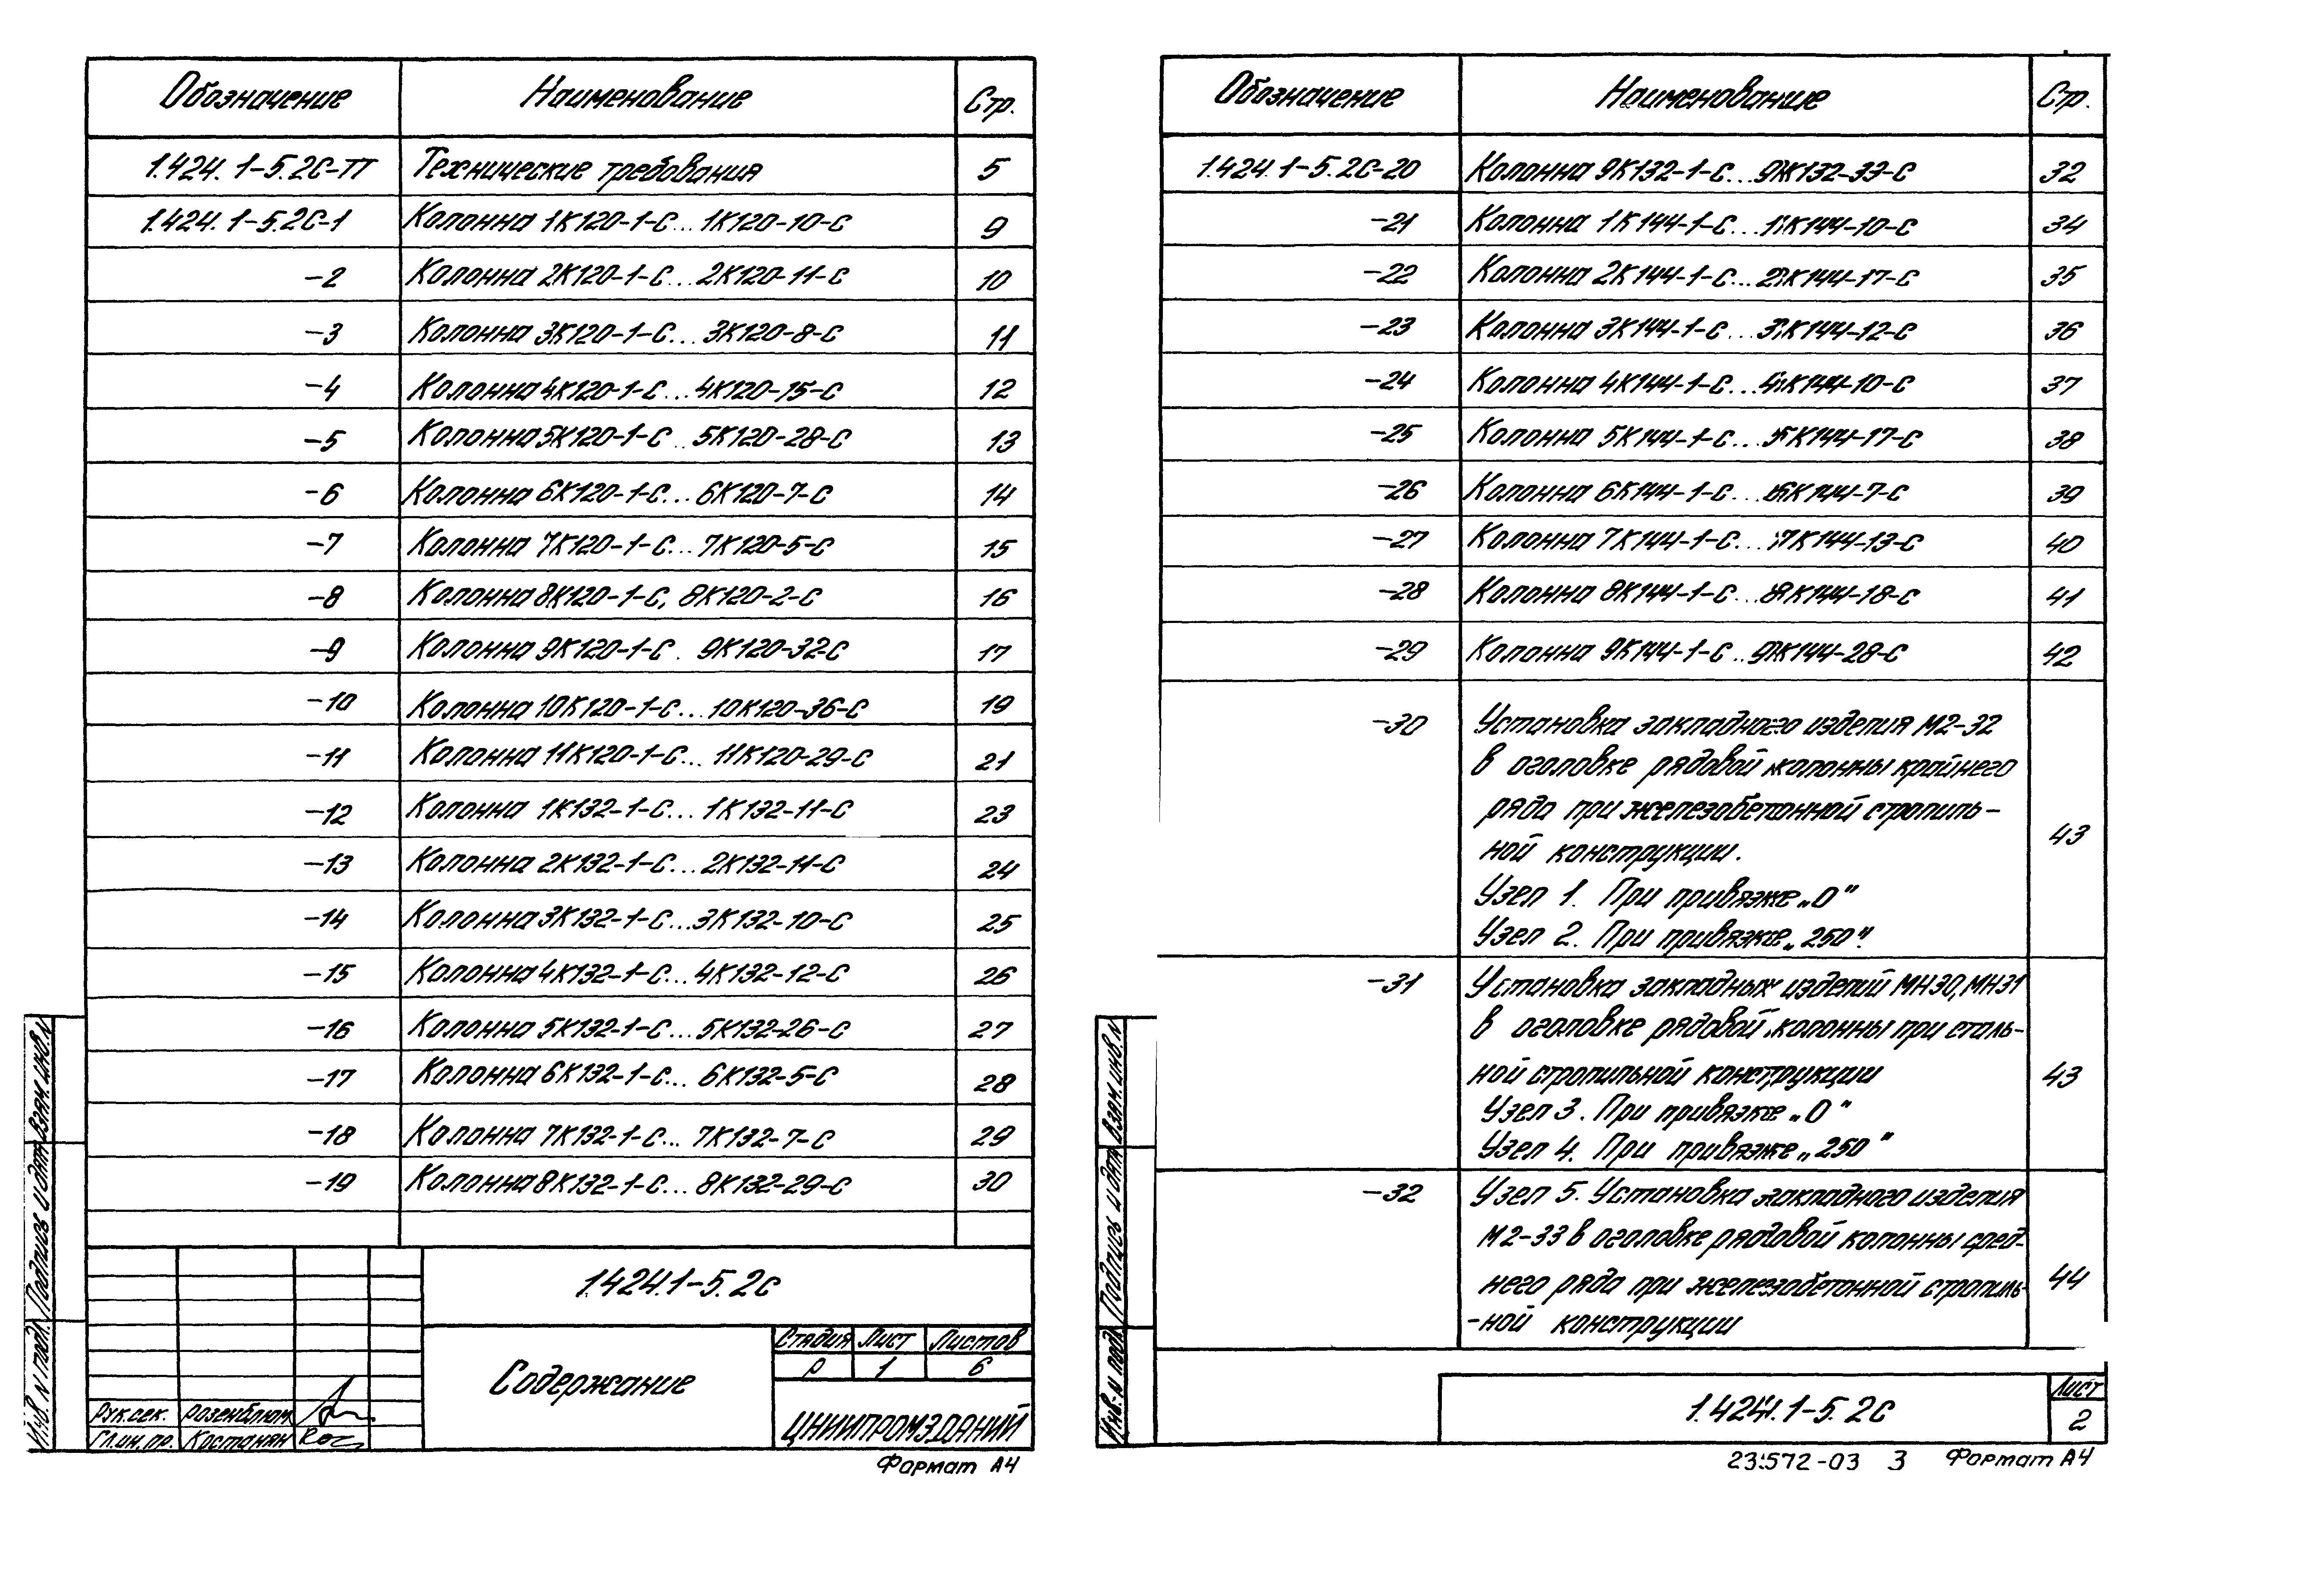 Обозначение Наименование Стр.
1.424.1-5.2С-ТТ Технические требования 5
1.424.1-5.2С-1 Колонна 1К120-1-С...1К120-10-С 9
-2 Колонна 2К120-1-С...2К120-11-С 10
-3 Колонна 3К120-1-С...3К120-8-С 11
-4 Колонна 4К120-1-С...4К120-15-С 12
-5 Колонна 5К120-1-С...5К120-28-С 13
-6 Колонна 6К120-1-С...6К120-7-С 14
-7 Колонна 7К120-1-С...7К120-5-С 15
-8 Колонна 8К120-1-С, 8К120-2-С 16
-9 Колонна 9К120-1-С...9К120-32-С 17
-10 Колонна 10К120-1-С...10К120-36-С 19
-11 Колонна 11К120-1-С...11К120-29-С 21
-12 Колонна 1К132-1-С...1К132-11-С 23
-13 Колонна 2К132-1-С...2К132-11-С 24
-14 Колонна 3К132-1-С...3К132-10-С 25
-15 Колонна 4К132-1-С...4К132-12-С 26
-16 Колонна 5К132-1-С...5К132-26-С 27
-17 Колонна 6К132-1-С...6К132-5-С 28
-18 Колонна 7К132-1-С...7К132-7-С 29
-19 Колонна 8К132-1-С...8К132-29-С 30
1.424.1-5.2С
Содержание
Стадия Лист Листов
Р 1 6
ЦНИИПРОМЗДАНИЙ
Рук.сек. Розенблюм
Гл.ин.пр. Костанян
Инв. N подл. Подпись и дата Взам. инв. N
Формат А4
Обозначение Наименование Стр.
1.424.1-5.2С-20 Колонна 9К132-1-С...9К132-33-С 32
-21 Колонна 1К144-1-С...1К144-10-С 34
-22 Колонна 2К144-1-С...2К144-17-С 35
-23 Колонна 3К144-1-С...3К144-12-С 36
-24 Колонна 4К144-1-С...4К144-10-С 37
-25 Колонна 5К144-1-С...5К144-17-С 38
-26 Колонна 6К144-1-С...6К144-7-С 39
-27 Колонна 7К144-1-С...7К144-13-С 40
-28 Колонна 8К144-1-С...8К144-18-С 41
-29 Колонна 9К144-1-С...9К144-28-С 42
-30 Установка закладного изделия М2-32
в оголовке рядовой колонны крайнего
ряда при железобетонной стропиль-
ной конструкции. 43
Узел 1. При привязке „0"
Узел 2. При привязке „250".
-31 Установка закладных изделий МН30, МН31
в оголовке рядовой колонны при сталь-
ной стропильной конструкции 43
Узел 3. При привязке „0"
Узел 4. При привязке „250"
-32 Узел 5. Установка закладного изделия
М2-33 в оголовке рядовой колонны сред-
него ряда при железобетонной стропиль- 44
-ной конструкции
Инв. N подл. Подпись и дата Взам. инв. N
1.424.1-5.2С
Лист
2
23572-03 3 Формат А4